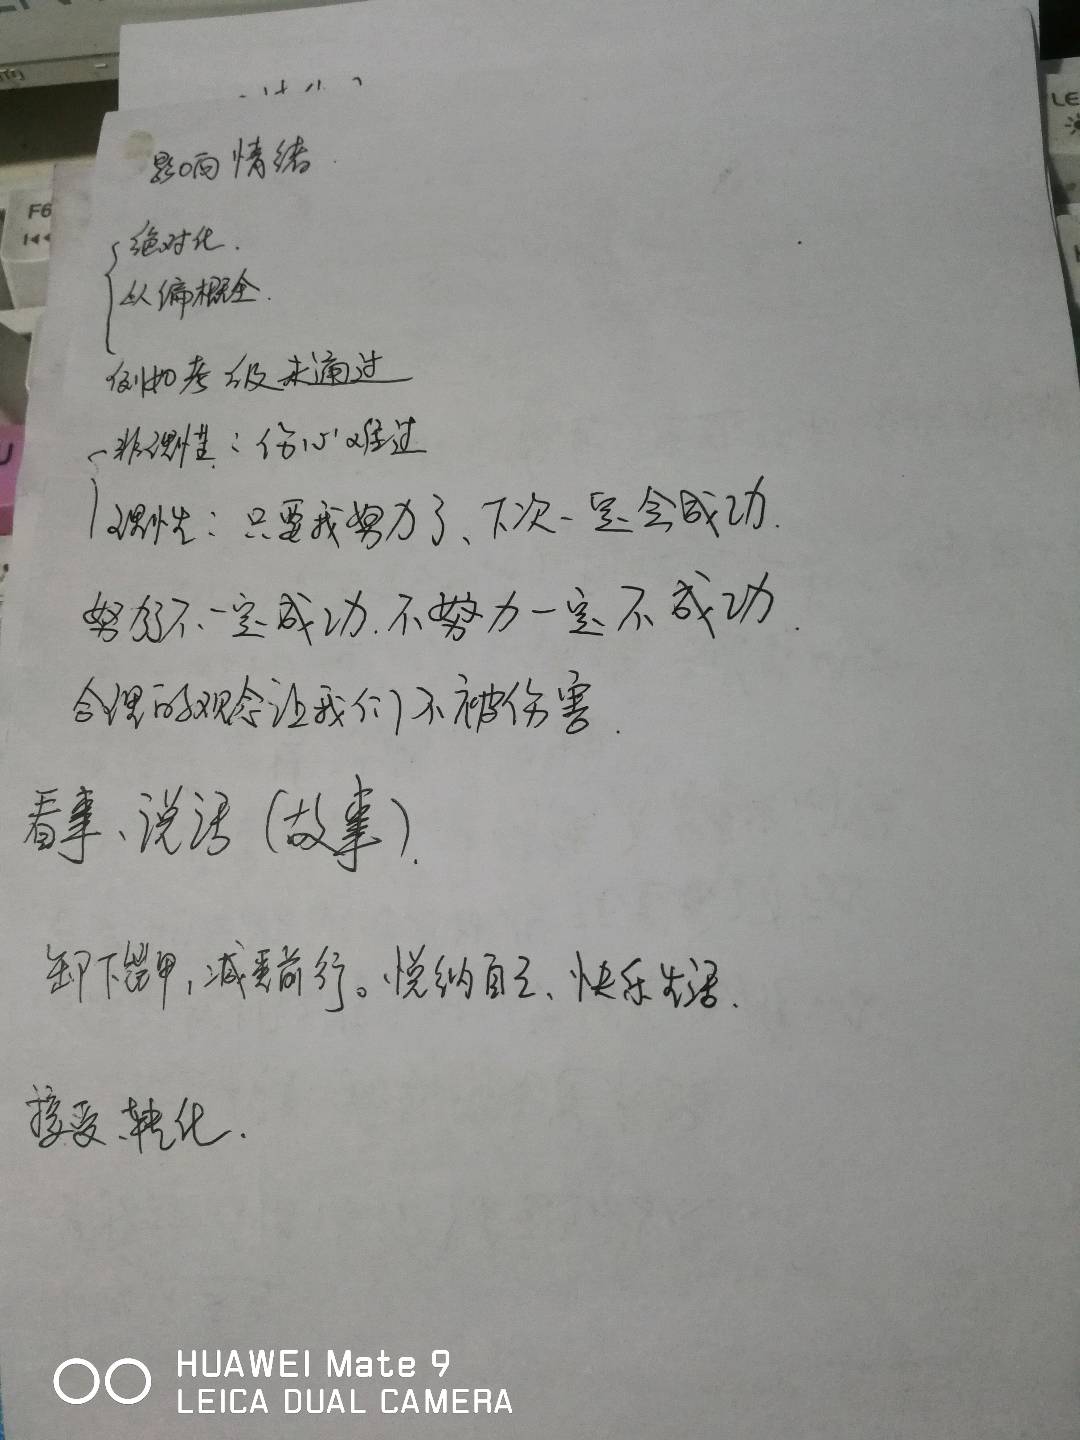 影响情绪.
绝对化.
以偏概全.
例如考级未通过
非理性：伤心难过
理性：只要我努力了、下次一定会成功.
努力了不一定成功.不努力一定不成功.
合理的观念让我们不被伤害.
看事、说话(故事).
卸下铠甲,减重前行。悦纳自己、快乐生活.
接受、转化.
F6
U
LE
HUAWEI Mate 9
LEICA DUAL CAMERA